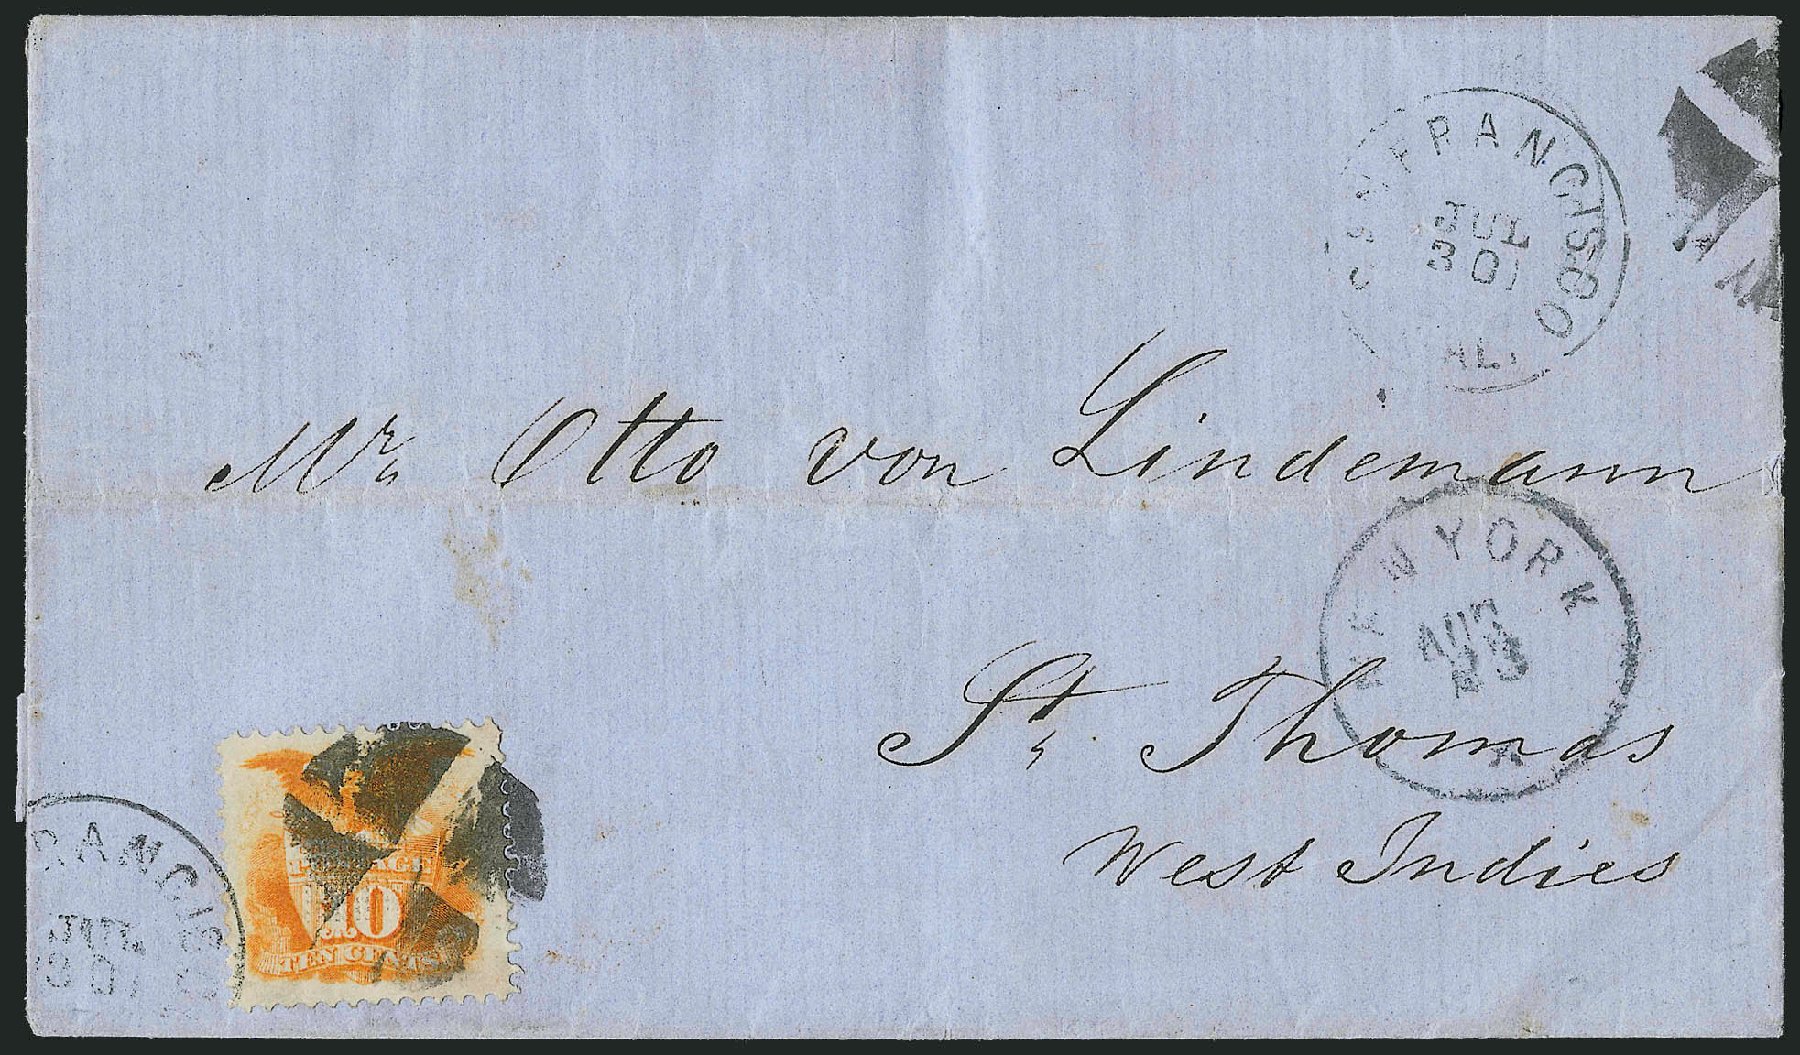 SAN FRANCISCO
JUL
30
CAL.
Mr. Otto von Lindemann
NEW YORK
AUG
St. Thomas
West Indies
FRANCIS
JUL
30
POSTAGE
10
TEN CENTS